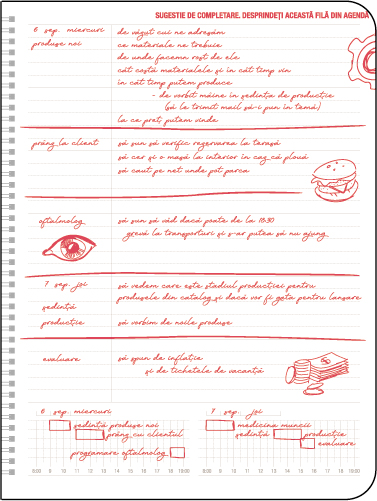 SUGESTIE DE COMPLETARE. DESPRINDEȚI ACEASTĂ FILĂ DIN AGENDĂ
6 sep. miercuri
de văzut cui ne adresăm
produse noi
ce materiale ne trebuie
de unde facem rost de ele
cât costă materialele și în cât timp vin
în cât timp putem produce
- de vorbit mâine în ședința de producție
(să le trimit mail să-i pun în temă)
la ce preț putem vinde
prânz la client
să sun să verific rezervarea la terasă
să cer și o masă la interior în caz că plouă
să caut pe net unde pot parca
oftalmolog
să sun să văd dacă poate de la 18:30
grevă la transporturi și s-ar putea să nu ajung
7 sep. joi
să vedem care este stadiul producției pentru
produsele din catalog și dacă vor fi gata pentru lansare
ședință
producție
să vorbim de noile produse
evaluare
să spun de inflație
și de tichetele de vacanță
6 sep. miercuri
ședință produse noi
prânz cu clientul
programare oftalmolog
8:00 9 10 11 12 13 14 15 16 17 18 19:00
7 sep. joi
medicina muncii
ședință producție
evaluare
8:00 9 10 11 12 13 14 15 16 17 18 19:00